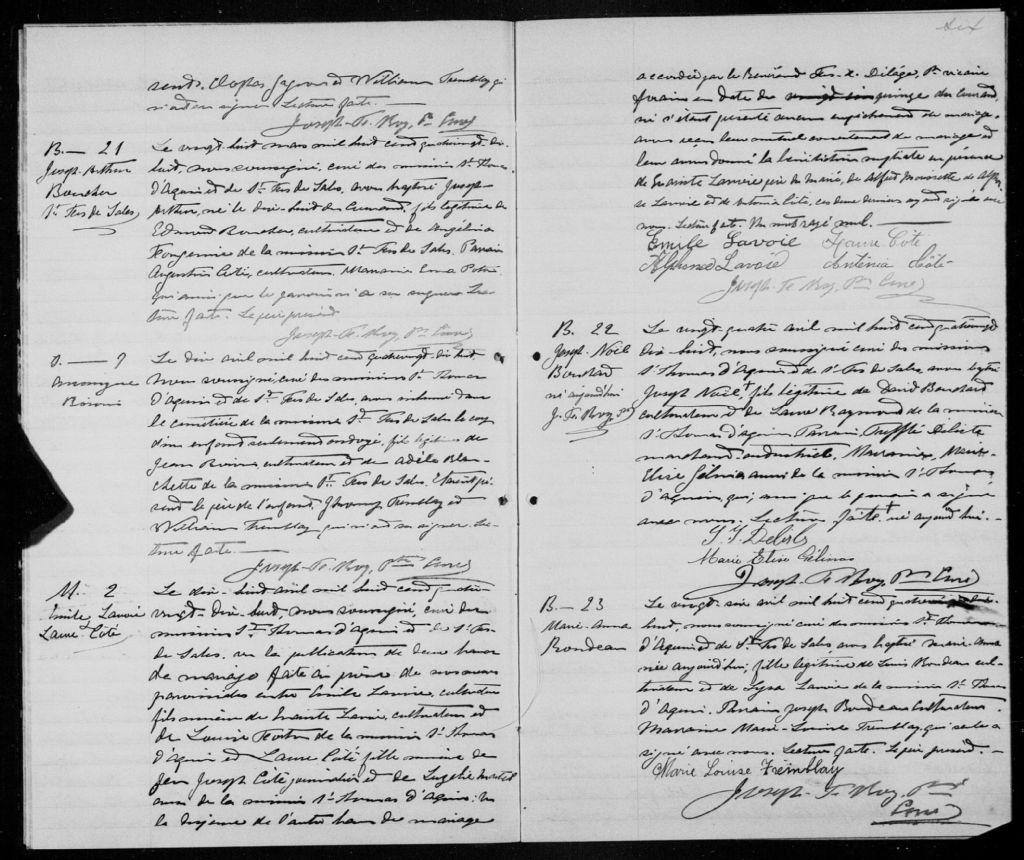 sents Cléophas Gagnon et William Tremblay qui
n'ont su signer. Lecture faite. —
Joseph-Ts Roy, Ptre Curé
B. — 21
Joseph-Arthur
Boucher
St. Frs de Sales
Le vingt huit mars mil huit cent quatrevingt dix
huit, nous soussigné, curé des missions St. Thomas
d'Aquin et de St. Frs de Sales, avons baptisé Joseph-
Arthur, né le dix-huit du courant, fils légitime de
Edmond Boucher, cultivateur et de
de la mission St. Frs de Sales. Parrain
Augustin Côté, cultivateur. Marraine
qui ainsi que le parrain n'a su signer. Lec-
ture faite. Le père présent
Joseph-Ts Roy, Ptre Curé
S. — 7
Anonyme
Le dix avril mil huit cent quatrevingt dix huit
Nous soussigné, curé des missions St. Thomas
d'Aquin et de St. Frs de Sales, avons inhumé dans
le cimetière de la mission St. Frs de Sales le corps
d'un enfant seulement ondoyé, fils légitime de
Jean cultivateur et de Adèle Blan-
chette de la mission St. Frs de Sales. Étaient pré-
sents le père de l'enfant, Tremblay et
William Tremblay qui n'ont su signer. Lec-
ture faite. —
Joseph-Ts Roy, Ptre Curé
M. 2
Emile Lavoie
Laure Côté
Le dix-huit avril mil huit cent quatre
vingt-dix-huit, nous soussigné, curé des
missions St. Thomas d'Aquin et de St. Frs
de Sales, vu la publication de deux bans
de mariage faite au prône de nos messes
paroissiales entre Emile Lavoie, cultivateur
fils mineur de Lavoie, cultivateur et
de Louise de la mission St. Thomas
d'Aquin et Laure Côté fille mineure de
Jean Joseph Côté journalier et de
aussi de la mission St. Thomas d'Aquin; vu
la dispense de l'autre ban de mariage
six
accordée par le Révérend Frs-X. Delâge, Ptre vicaire
forain en date de quinze du courant,
ni s'étant présenté aucun empêchement au mariage,
avons reçu leur mutuel consentement de mariage et
leur avons donné la bénédiction nuptiale en présence
de Lavoie père du marié, de Alfred de Alphon-
se Lavoie et de Antonia Côté, ces deux derniers ayant signé avec
nous. Lecture faite. Un mot rayé nul. —
Emile Lavoie Laure Côté
Alphonse Lavoie Anténia Côté
Joseph-Ts Roy, Ptre Curé
B. 22
Joseph-Noël
Bouchard
né aujourd'hui
J. Ts Roy, Ptre
Le vingt-quatre avril mil huit cent quatrevingt
dix-huit, nous soussigné curé des missions
St Thomas d'Aquin et de St. Frs de Sales, avons baptisé
Joseph Noël †, fils légitime de David Bouchard
cultivateur et de Laure Raymond de la mission
St Thomas d'Aquin. Parrain, Trefflé Delisle
marchand industriel, Marraine, Marie-
Elise Gélinas aussi de la mission St Thomas
d'Aquin, qui, ainsi que le parrain a signé
avec nous. Lecture faite. † né aujourd'hui. —
T. T. Delisle
Marie Elise Gélinas
Joseph-Ts Roy Ptre Curé
B. — 23
Marie-Anna
Rondeau
Le vingt-six avril mil huit cent quatrevingt dix-
huit, nous soussigné curé des missions St. Thomas
d'Aquin et de St. Frs de Sales avons baptisé Marie-Anna
née aujourd'hui, fille légitime de Louis Rondeau cul-
tivateur et de Lavoie de la mission St. Thomas
d'Aquin. Parrain Joseph Rondeau cultivateur.
Marraine Marie-Louise Tremblay, qui seule a
signé avec nous. Lecture faite. Le père présent. —
Marie Louise Tremblay
Joseph-Ts Roy, Ptre
Curé